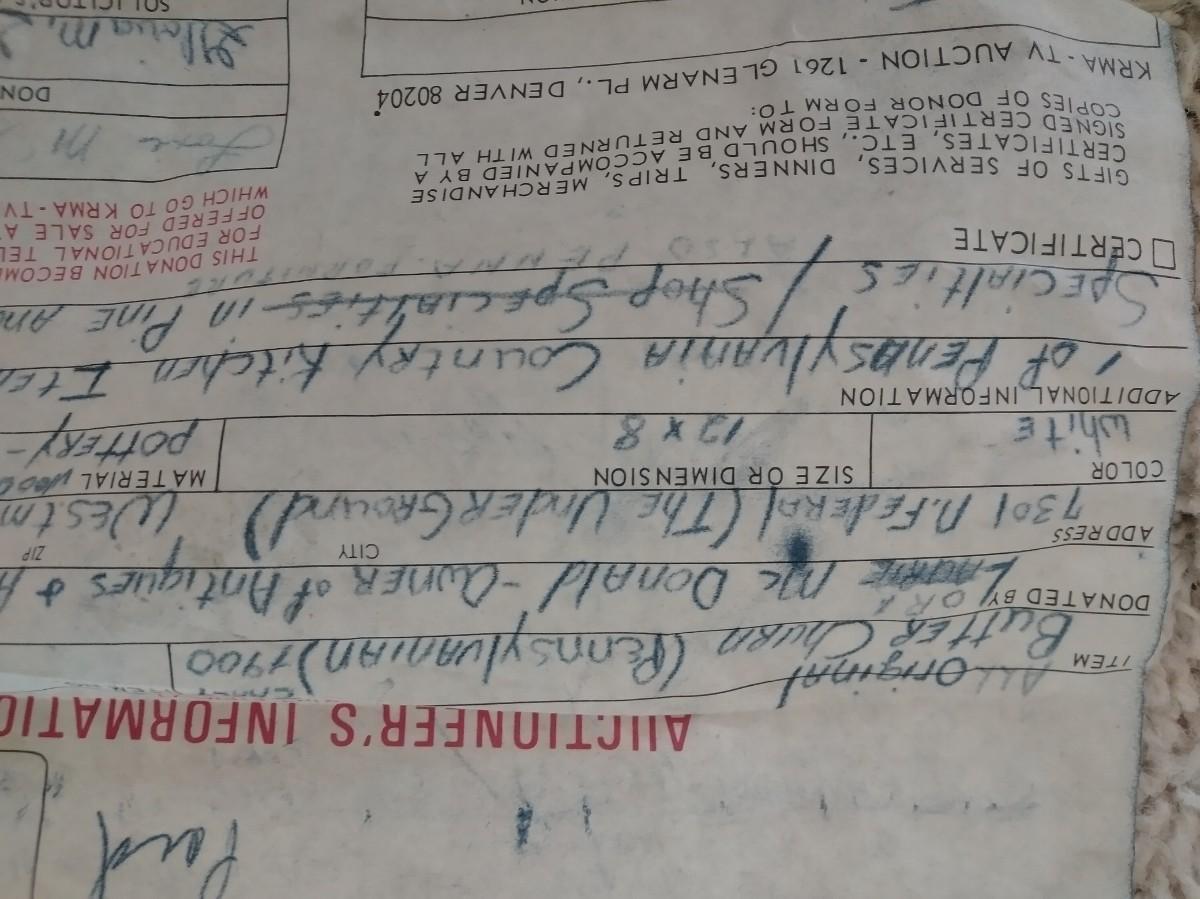 Paid
AUCTIONEER'S INFORMATIO
ITEM
ALL Original
Butter Churn (Pennsylvanian) 1900
DONATED BY
OR
Mc Donald - Owner of Antiques &
ADDRESS CITY ZIP
7301 N. Federal (The UnderGround) Westm
COLOR SIZE OR DIMENSION MATERIAL
White 12 x 8 Pottery -
ADDITIONAL INFORMATION
of Pennsylvania Country Kitchen Ite
Specialties / Shop Specialties in Pine An
ALSO PENNA. FURNITURE
CERTIFICATE
GIFTS OF SERVICES, DINNERS, TRIPS, MERCHANDISE
CERTIFICATES, ETC., SHOULD BE ACCOMPANIED BY A
SIGNED CERTIFICATE FORM AND RETURNED WITH ALL
COPIES OF DONOR FORM TO:
KRMA - TV AUCTION - 1261 GLENARM PL., DENVER 80204
THIS DONATION BECOM
FOR EDUCATIONAL TEL
OFFERED FOR SALE A
WHICH GO TO KRMA - TV
DON
SOLICITOR'S